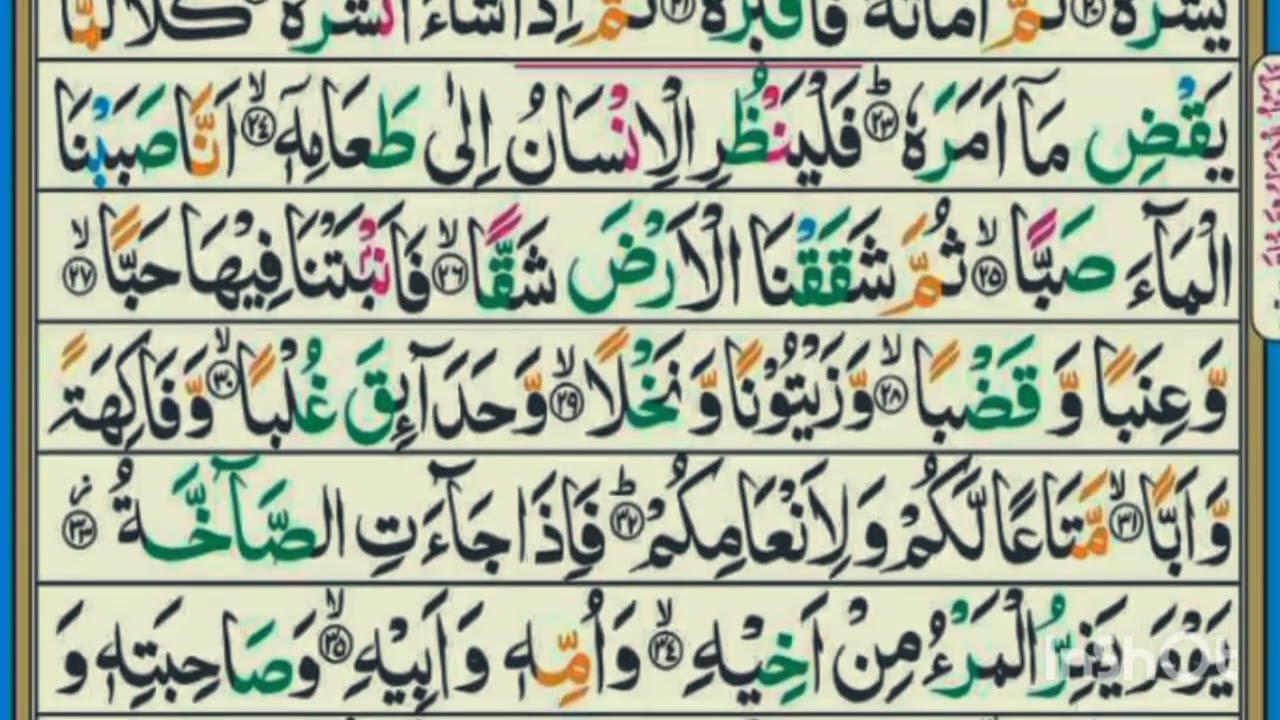 يَسَّرَهٗ ﴿۲۰﴾ ثُمَّ اَمَاتَهٗ فَاَقْبَرَهٗ ﴿۲۱﴾ ثُمَّ اِذَا شَآءَ اَنْشَرَهٗ ﴿۲۲﴾ كَلَّا لَمَّا
يَقْضِ مَاۤ اَمَرَهٗ ؕ﴿۲۳﴾ فَلْيَنْظُرِ الْاِنْسَانُ اِلٰى طَعَامِهٖۤ ۙ﴿۲۴﴾ اَنَّا صَبَبْنَا
الْمَآءَ صَبًّا ۙ﴿۲۵﴾ ثُمَّ شَقَقْنَا الْاَرْضَ شَقًّا ۙ﴿۲۶﴾ فَاَنْۢبَتْنَا فِيْهَا حَبًّا ۙ﴿۲۷﴾
وَّ عِنَبًا وَّ قَضْبًا ۙ﴿۲۸﴾ وَّ زَيْتُوْنًا وَّ نَخْلًا ۙ﴿۲۹﴾ وَّ حَدَآئِقَ غُلْبًا ۙ﴿۳۰﴾ وَّ فَاكِهَةً
وَّ اَبًّا ۙ﴿۳۱﴾ مَّتَاعًا لَّكُمْ وَ لِاَنْعَامِكُمْ ؕ﴿۳۲﴾ فَاِذَا جَآءَتِ الصَّآخَّةُ ؗ﴿۳۳﴾
يَوْمَ يَفِرُّ الْمَرْءُ مِنْ اَخِيْهِ ۙ﴿۳۴﴾ وَ اُمِّهٖ وَ اَبِيْهِ ۙ﴿۳۵﴾ وَ صَاحِبَتِهٖ وَ
InShot